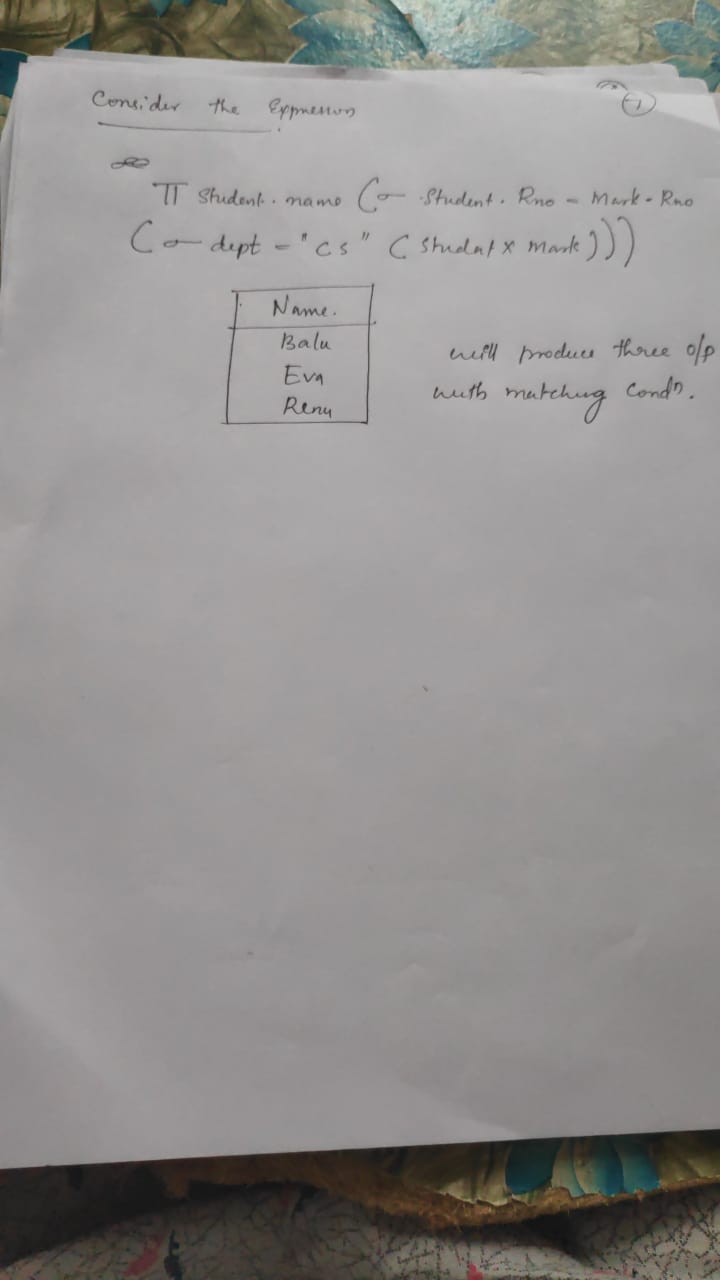 Consider the Expression
(1)
π Student. name (σ .Student. Rno = Mark. Rno
(σ dept = "cs" ( Student x mark )))
Name.
Balu
Eva
Renu
will produce three o/p
with matching Condn.